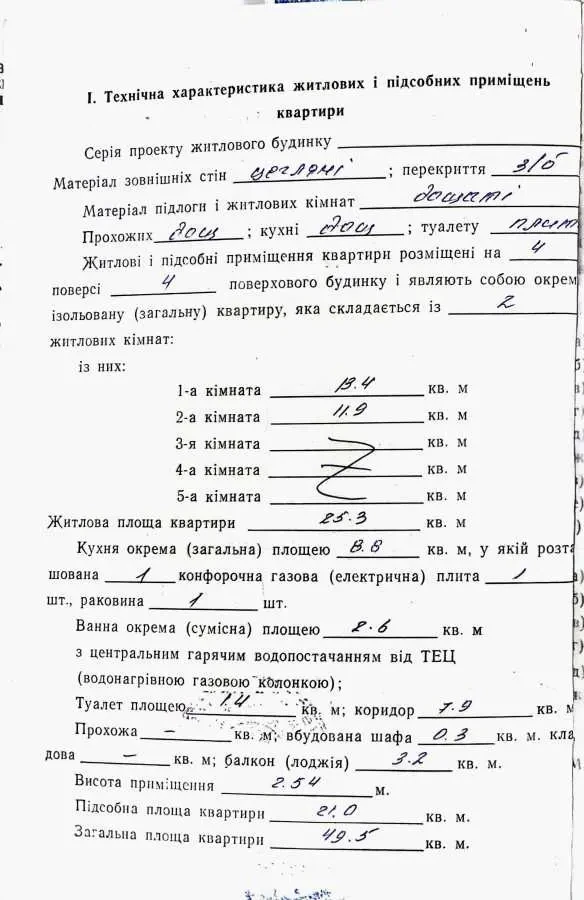 I. Технічна характеристика житлових і підсобних приміщень
квартири
Серія проекту житлового будинку
Матеріал зовнішніх стін цегляні ; перекриття з/б
Матеріал підлоги і житлових кімнат дощаті
Прохожих дощ ; кухні дощ ; туалету плит
Житлові і підсобні приміщення квартири розміщені на 4
поверсі 4 поверхового будинку і являють собою окрем
ізольовану (загальну) квартиру, яка складається із 2
житлових кімнат:
із них:
1-а кімната 13.4 кв. м
2-а кімната 11.9 кв. м
3-я кімната кв. м
4-а кімната кв. м
5-а кімната кв. м
Житлова площа квартири 25.3 кв. м
Кухня окрема (загальна) площею 8.8 кв. м, у якій розта
шована 1 конфорочна газова (електрична) плита 1
шт., раковина 1 шт.
Ванна окрема (сумісна) площею 2.6 кв. м
з центральним гарячим водопостачанням від ТЕЦ
(водонагрівною газовою колонкою);
Туалет площею 1.4 кв. м; коридор 7.9 кв. м
Прохожа — кв. м; вбудована шафа 0.3 кв. м. кла
дова — кв. м; балкон (лоджія) 3.2 кв. м.
Висота приміщення 2.54 м.
Підсобна площа квартири 21.0 кв. м.
Загальна площа квартири 49.5 кв. м.